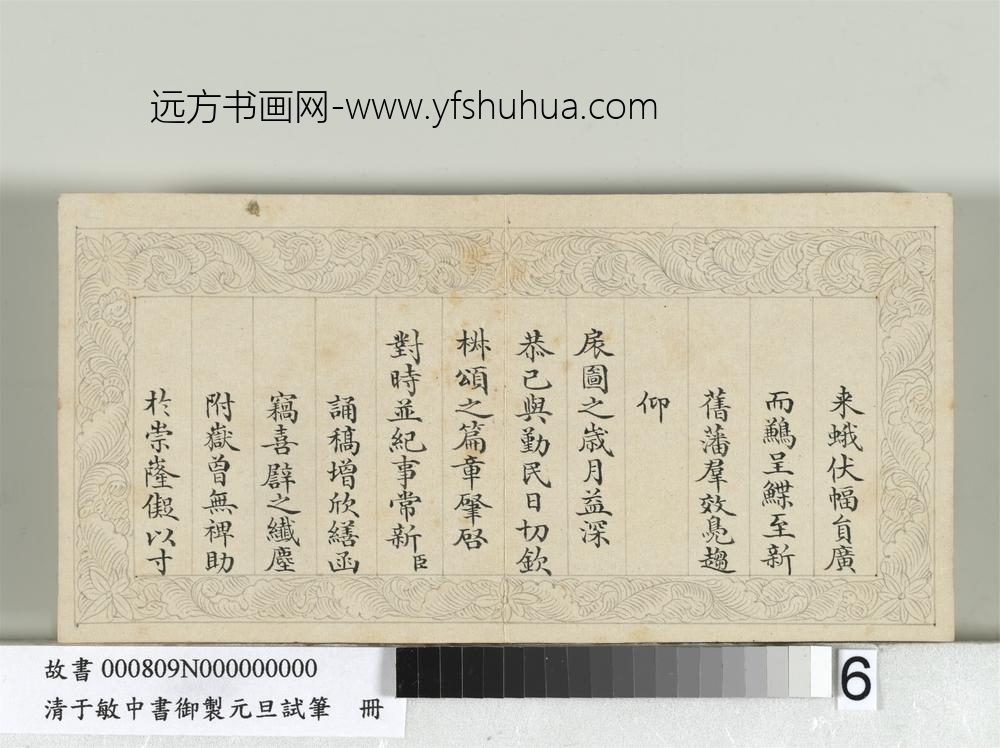 远方书画网-www.yfshuhua.com
来蛾伏幅員廣
而鷫呈鰈至新
舊藩羣效鳧趨
仰
扆圖之歲月益深
恭己與勤民日切欽
椒頌之篇章肇啓
對時並紀事常新臣
誦稿增欣繕函
竊喜辟之纖塵
附嶽曾無裨助
於崇隆儗以寸
故書 000809N000000000
清于敏中書御製元旦試筆 冊
6